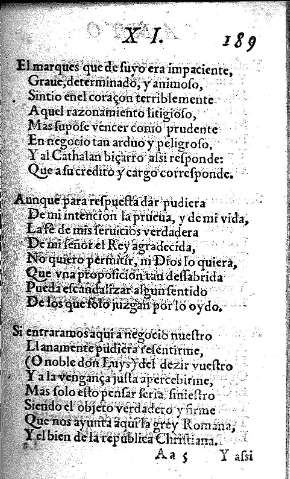 XI. 189
El marques que de suyo era impaciente,
Graue, determinado, y animoso,
Sintio enel coraçon terriblemente
Aquel razonamiento litigioso,
Mas supose vencer como prudente
En negocio tan arduo y peligroso,
Y al Cathalan biçarro assi responde:
Que a su credito y cargo corresponde.
Aunque para respuesta dar pudiera
De mi intencion la prueua, y de mi vida,
La fe de mis seruicios verdadera
De mi señor el Rey agradecida,
No quiero permitir, ni Dios lo quiera,
Que vna proposicion tan dessabrida
Pueda escandalizar algun sentido
De los que solo juzgan por lo oydo.
Si entraramos aqui a negocio nuestro
Llanamente pudiera resentirme,
(O noble don Luys) del dezir vuestro
Y a la vengança justa apercebirme,
Mas solo esto pensar seria siniestro
Siendo el objeto verdadero y firme
Que nos ayunta aqui la grey Romana,
Y el bien de la republica Christiana.
Aa 5 Y assi